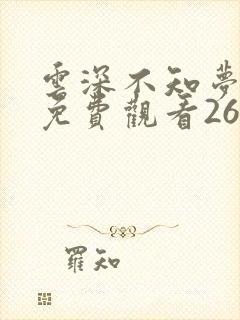 雲深不知夢
免費觀看26
羅知